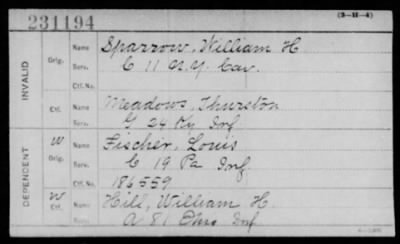 231194
(3-11-4)
INVALID
Orig.
Name Sparrow, William H
Serv. C 11 N.Y. Cav.
Ctf. No.
Ctf.
Name Meadows, Thurston
Serv. G 24 Ky Inf
DEPENDENT
W
Orig.
Name Fischer, Louis
Serv. C 19 Pa Inf.
Ctf. No. 186559
W
Ctf.
Name Hill, William H.
Serv. A 81 Ohio Inf